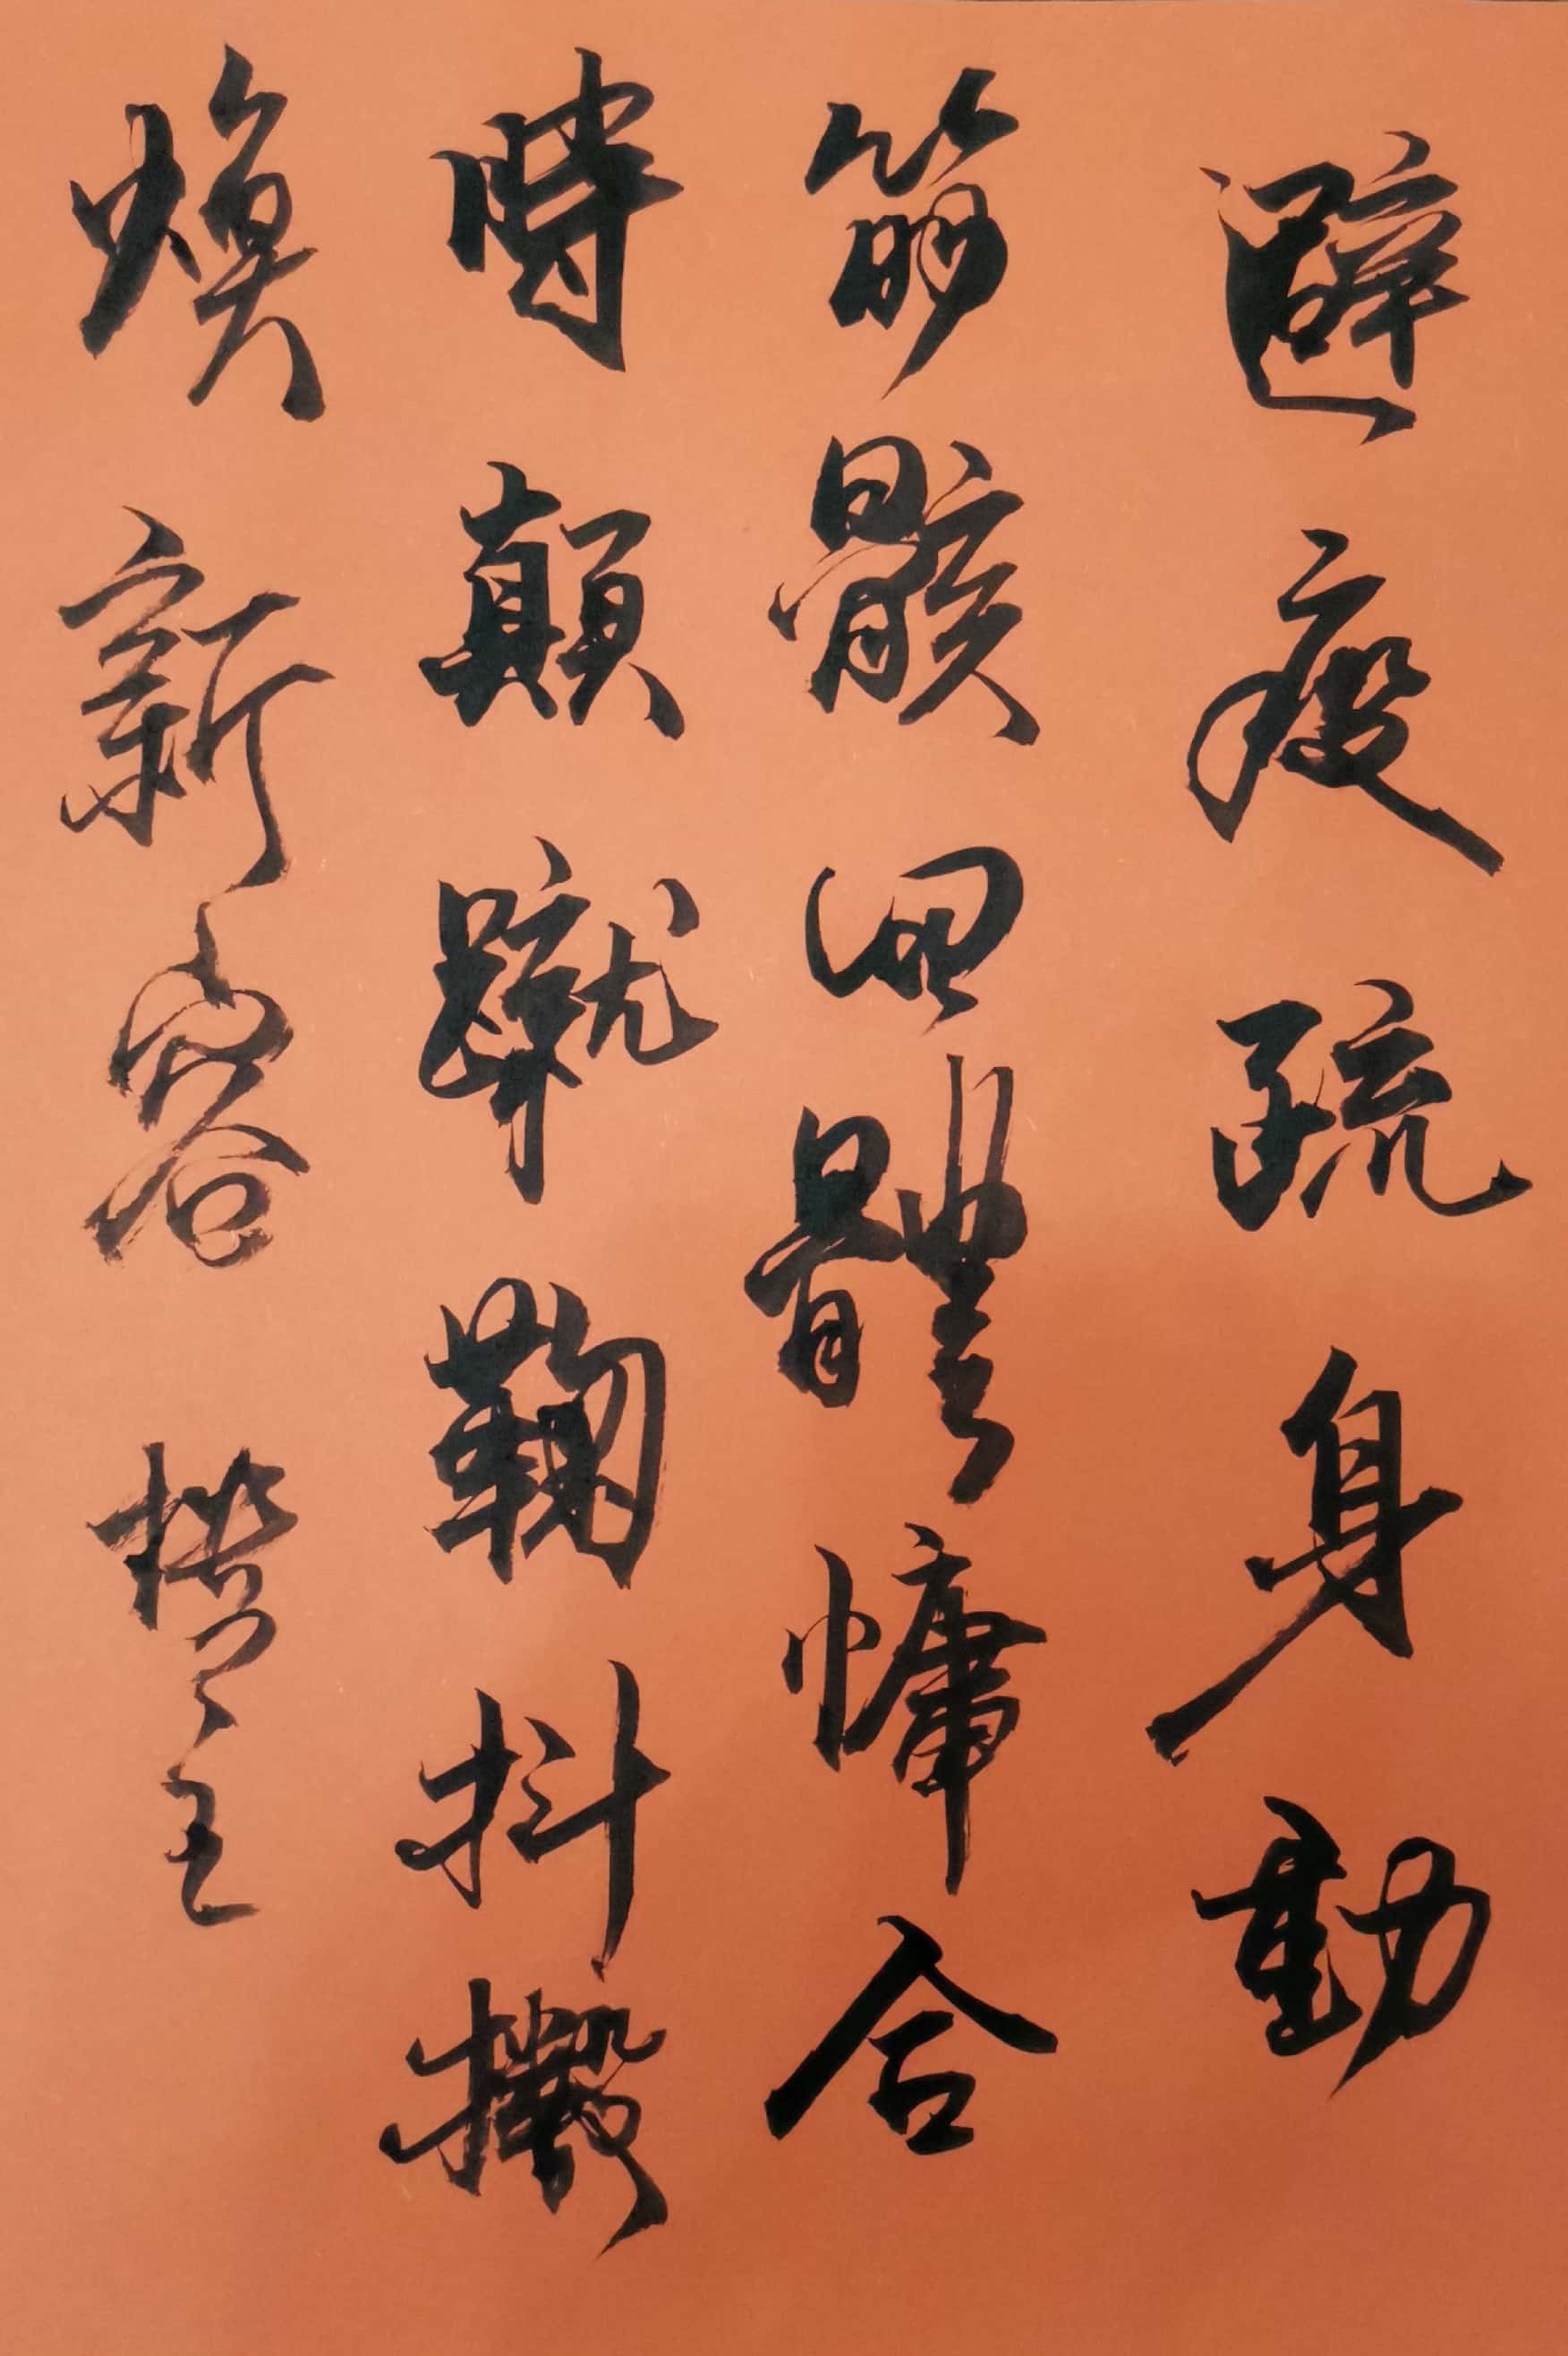 避疫疏身動
筋骸四體慵合
時顛蹴鞠抖擻
煥新容楚王